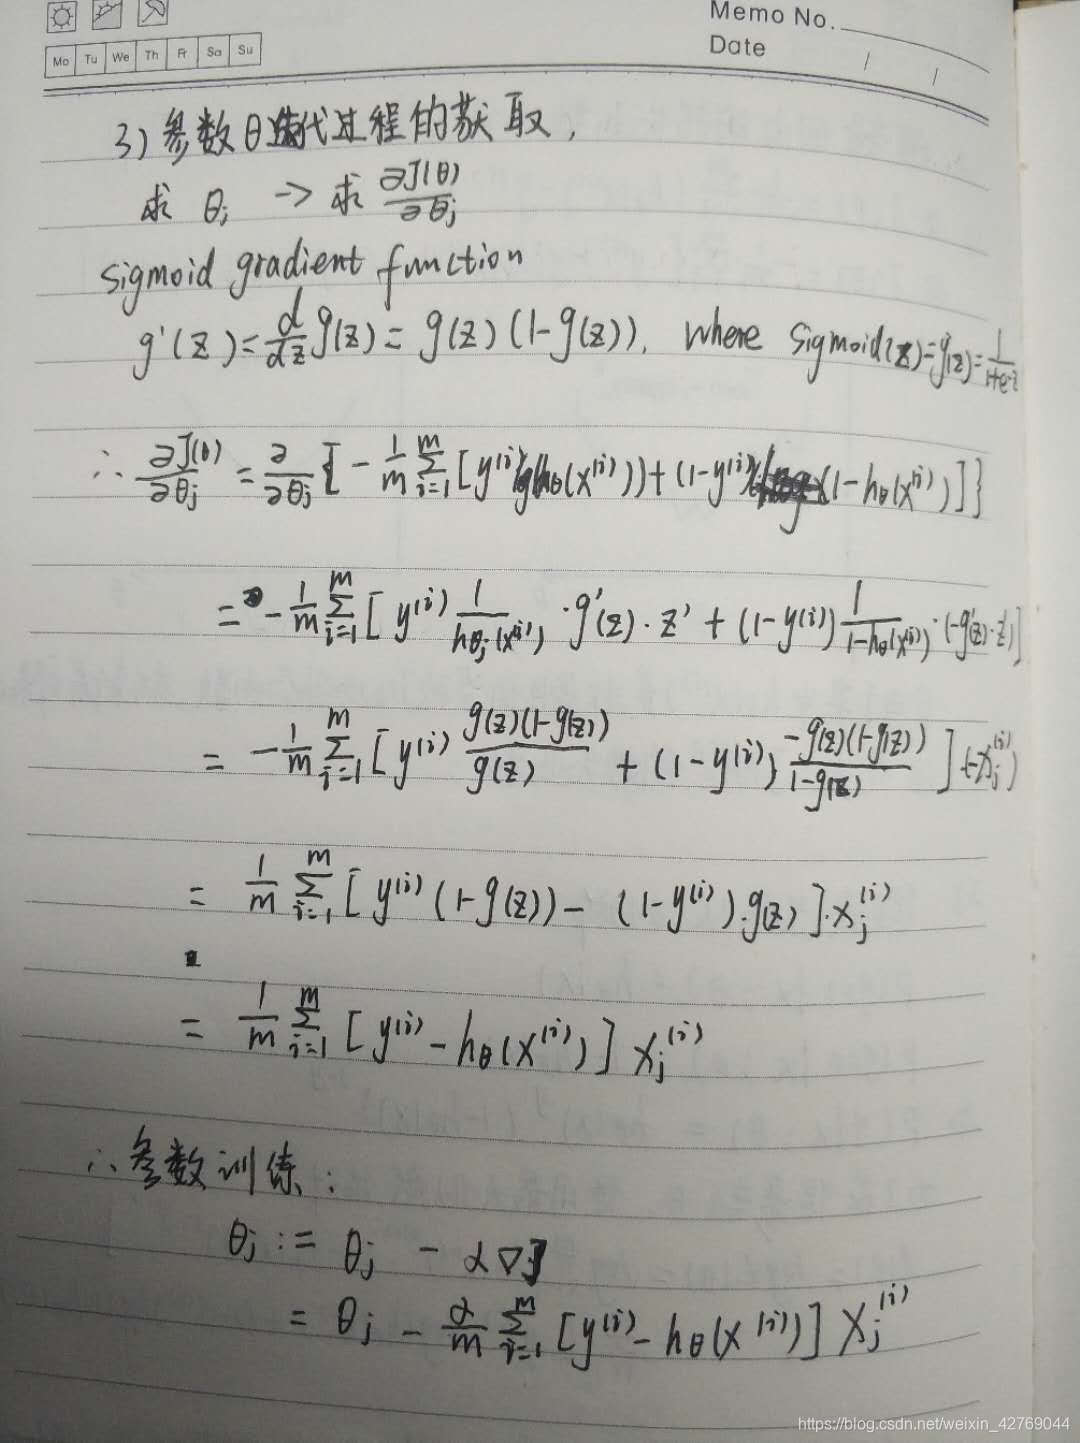 Memo No.
Date / /
Mo Tu We Th Fr Sa Su
3) 参数θ迭代过程的获取,
求 θj -> 求 ∂J(θ)/∂θj
sigmoid gradient function
g'(z) = d/dz g(z) = g(z)(1-g(z)), where sigmoid(z) = g(z) = 1/(1+e^-z)
∴ ∂J(θ)/∂θj = ∂/∂θj { - 1/m Σ_{i=1}^{m} [y^(i) lg(hθ(x^(i))) + (1-y^(i)) (1-hθ(x^(i)))]}
= - 1/m Σ_{i=1}^{m} [y^(i) 1/hθj(x^(i)) · g'(z) · z' + (1-y^(i)) 1/(1-hθ(x^(i))) · (-g'(z)·z')]
= - 1/m Σ_{i=1}^{m} [y^(i) g(z)(1-g(z))/g(z) + (1-y^(i)) -g(z)(1-g(z))/(1-g(z))] (-xj^(i))
= 1/m Σ_{i=1}^{m} [y^(i) (1-g(z)) - (1-y^(i)) · g(z)] · xj^(i)
= 1/m Σ_{i=1}^{m} [y^(i) - hθ(x^(i))] xj^(i)
∴ 参数训练:
θj := θj - α∇J
= θj - α/m Σ_{i=1}^{m} [y^(i) - hθ(x^(i))] xj^(i)
https://blog.csdn.net/weixin_42769044